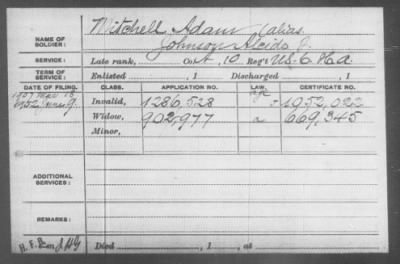 NAME OF SOLDIER: Mitchell Adam (alias
Johnson Alcide J.
SERVICE: Late rank, Co. A, 10 Reg't U.S.C.H.A.
TERM OF SERVICE: Enlisted , 1 Discharged , 1
DATE OF FILING. CLASS. APPLICATION NO. LAW. CERTIFICATE NO.
Invalid, 1286,528 1052,022
Widow, 902,977 669,345
Minor,
ADDITIONAL SERVICES:
REMARKS:
Died , 1 , at